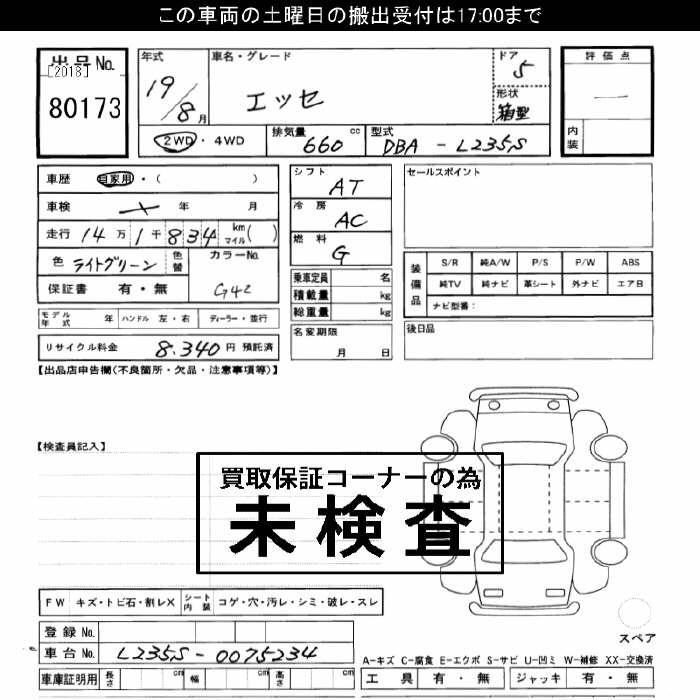 この車両の土曜日の搬出受付は17:00まで
出品No.
[2018]
80173
年式
19/8月
車名・グレード
エッセ
ドア 5
形状 箱型
評価点
一
内装
2WD・4WD
排気量 660 cc
型式 DBA-L235S
車歴 自家用・( )
車検 年 月
走行 14万1千834 km マイル( )
色 ライトグリーン 色替
カラーNo. G42
保証書 有・無
モデル年式 年 ハンドル 左・右 ディーラー・並行
リサイクル料金 8,340円 預託済
シフト AT
冷房 AC
燃料 G
乗車定員 名
積載量 kg
総重量 kg
名変期限
月 日
セールスポイント
装備品
S/R 純A/W P/S P/W ABS
純TV 純ナビ 革シート 外ナビ エアB
ナビ型番:
後日品
【出品店申告欄(不良箇所・欠品・注意事項等)】
【検査員記入】
買取保証コーナーの為
未検査
FW キズ・トビ石・割レX シート内装 コゲ・穴・汚レ・シミ・破レ・スレ
登録No.
車台No. L235S-0075234
車庫証明用 長さ cm 幅 cm 高さ cm
スペア
A-キズ C-腐食 E-エクボ S-サビ U-凹ミ W-補修 XX-交換済
工具 有・無 ジャッキ 有・無